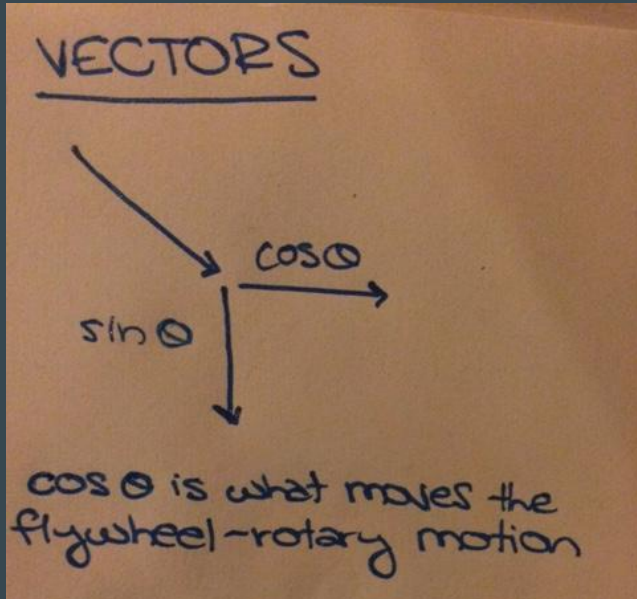 VECTORS
cosθ
sinθ
cosθ is what moves the
flywheel-rotary motion